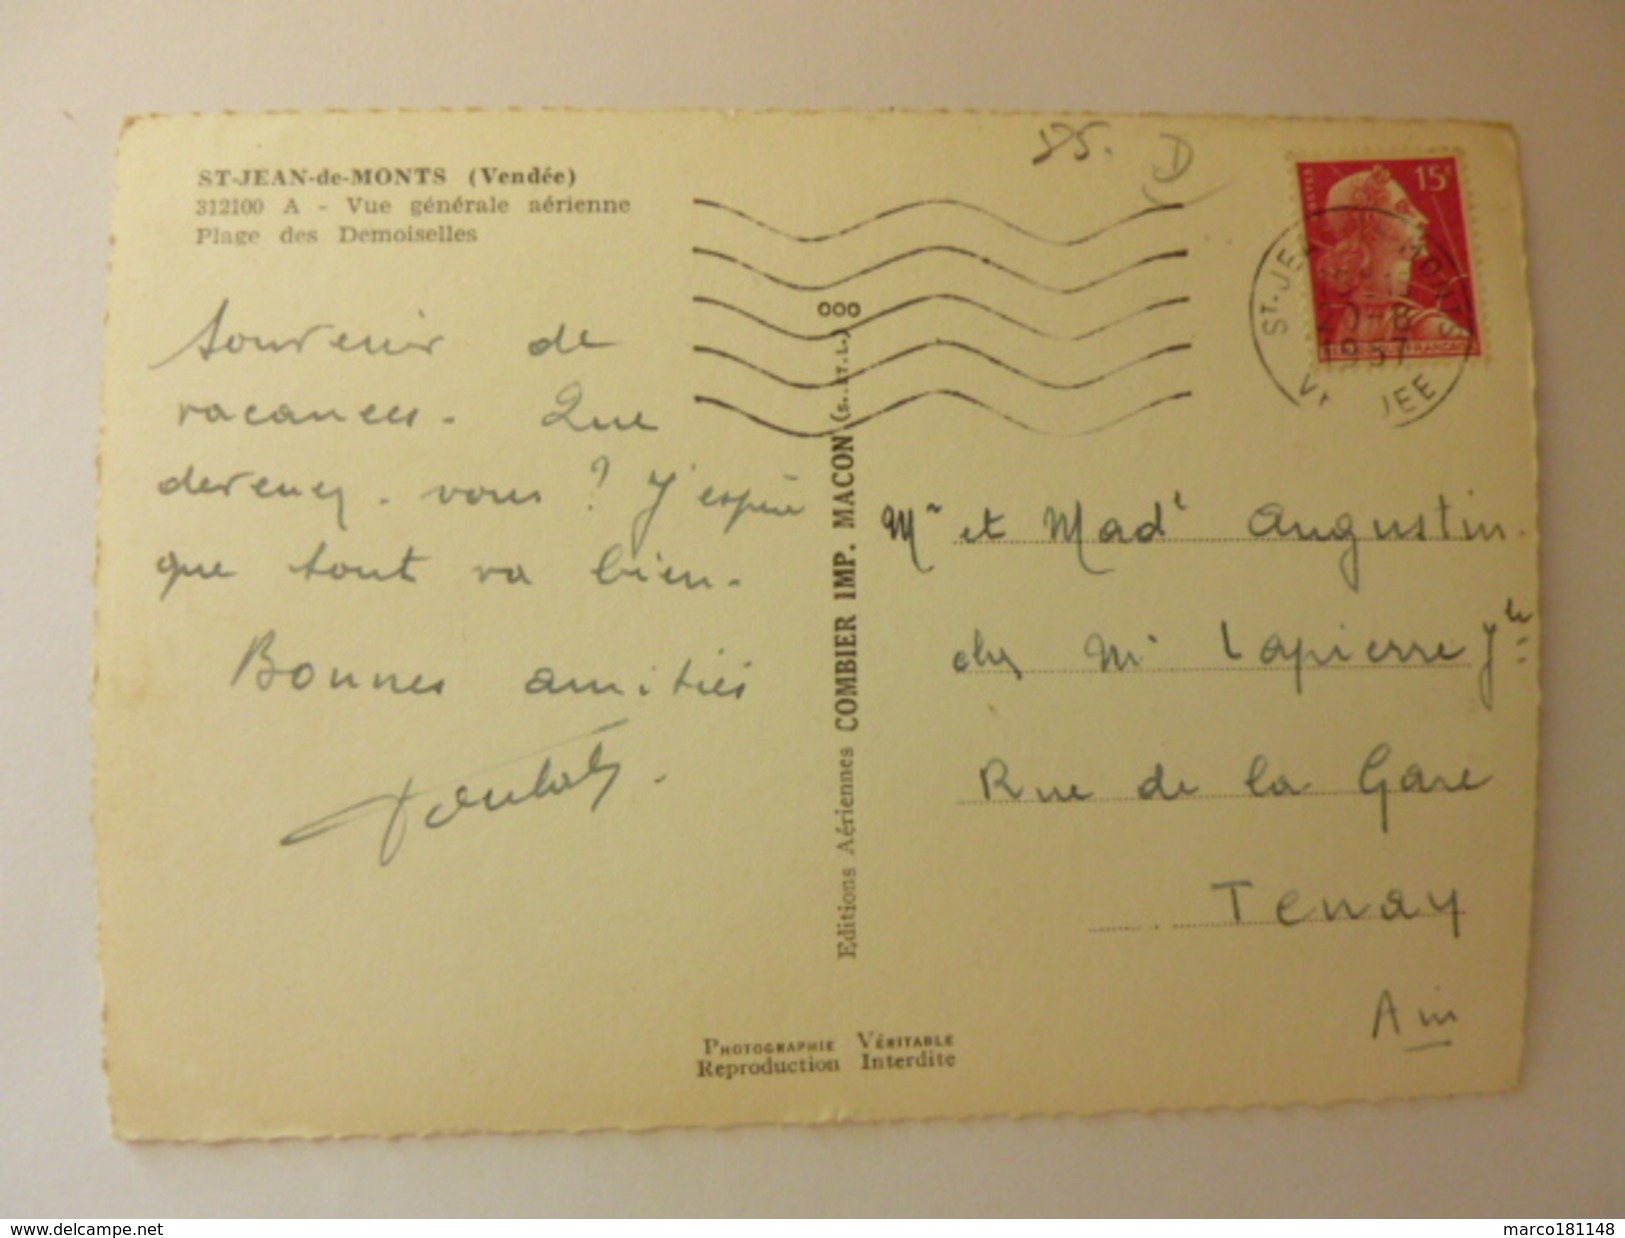 ST-JEAN-de-MONTS (Vendée)
312100 A - Vue générale aérienne
Plage des Demoiselles
Souvenir de
vacances. Que
devenez-vous ? J'espère
que tout va bien.
Bonnes amitiés
Editions Aériennes COMBIER IMP. MACON (S.-ET.L.)
000
15F
ST-JEAN MONTS
20-8
1957
VENDEE
Mr et Made Augustin
chez Mr Lapierre Jh
Rue de la Gare
Tenay
Ain
PHOTOGRAPHIE VÉRITABLE
Reproduction Interdite
www.delcampe.net
marco181148